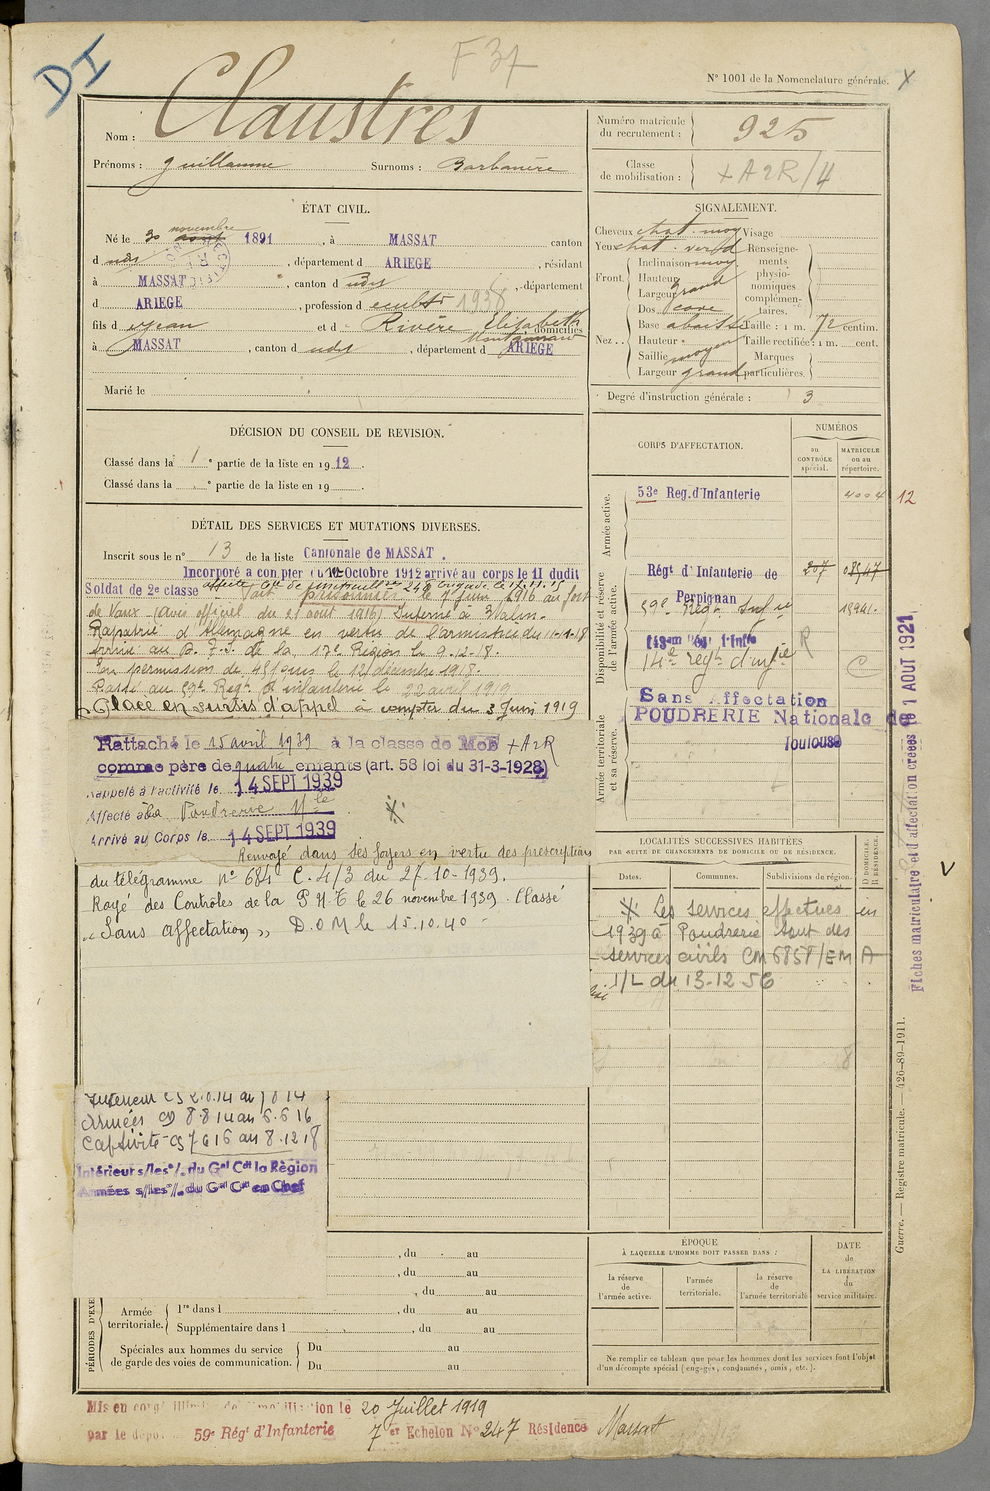 DI
F 37
N° 1001 de la Nomenclature générale. X
Nom : Claustres
Prénoms : Guillaume Surnoms : Barbanère
Numéro matricule du recrutement : 925
Classe de mobilisation : + A 2R/4
ÉTAT CIVIL.
Né le 30 novembre août 1891, à MASSAT, canton
d udit, département d ARIEGE, résidant
à MASSAT, canton d udit, département
d ARIEGE, profession d 1938
fils d Jean et d Rivère Elisabeth domiciliés
à MASSAT, canton d udit, département d ARIEGE
Marié le
SIGNALEMENT.
Cheveux chat. moy Visage
Yeux chat. verd Renseignements physionomiques complémentaires.
Front Inclinaison moy.
Hauteur
Largeur grand
Nez Dos cave
Base abaissée Taille : 1 m. 72 centim.
Hauteur " Taille rectifiée : 1 m. cent.
Saillie moyen Marques particulières.
Largeur grand
Degré d'instruction générale : 3
DÉCISION DU CONSEIL DE REVISION.
Classé dans la 1e partie de la liste en 1912.
Classé dans la e partie de la liste en 19
CORPS D'AFFECTATION.
NUMÉROS
au CONTRÔLE spécial.
MATRICULE ou au répertoire.
Armée active.
53e Reg. d'Infanterie 4004 12
Disponibilité et réserve de l'armée active.
Régt d'Infanterie de Perpignan 207 08547
59e Régt Infie 15941.
14e regt d'infie R C
Armée territoriale et sa réserve.
Sans Affectation
POUDRERIE Nationale de
Toulouse
DÉTAIL DES SERVICES ET MUTATIONS DIVERSES.
Inscrit sous le n° 13 de la liste Cantonale de MASSAT.
Incorporé à compter du 10 Octobre 1912 arrivé au corps le 11 dudit
Soldat de 2e classe
Fait prisonnier le 7 Juin 1916 au fort
de Vaux (Avis officiel du 21 août 1916) Interné à
Rapatrié d'Allemagne en vertu de l'armistice du 11-11-18
Arrivé au D. T. I. de la 17e Region le 9-12-18.
En permission de 48 jours le 12 décembre 1918.
Passé au 59e Régt d'infanterie le 22 avril 1919
Placé en sursis d'appel à compter du 3 Juin 1919
Rattaché le 15 avril 1939 à la classe de Mob + A2R
comme père de quatre enfants (art. 58 loi du 31-3-1928)
Rappelé à l'activité le 14 SEPT 1939
Affecté à la Poudrerie Nle
Arrivé au Corps le 14 SEPT 1939
Renvoyé dans ses foyers en vertu des prescriptions
du télégramme n° 684 C. 4/3 du 27-10-1939.
Rayé des Contrôles de la P N T le 26 novembre 1939. Classé
"Sans affectation" D.O.M le 15.10.40 -
LOCALITÉS SUCCESSIVES HABITÉES
PAR SUITE DE CHANGEMENTS DE DOMICILE OU DE RÉSIDENCE.
Dates. Communes. Subdivisions de région. D DOMICILE. R RÉSIDENCE.
Les services effectués en
1939 à Poudrerie sont des
services civils CM 6858/EM A
1/L du 13-12-56
Fiches matriculaire et d'affectation créées le 1 AOUT 1921
V
Guerre. — Registre matricule. — 426-89-1911.
Armées CS 8.8.14 au 6.6.16
Captivité CS 7 6 16 au 8.12.18
Intérieur s/les o/. du Gal Cdt la Région
Armées s/les o/. du Gal Ct en Chef
, du au
, du au
, du au
PÉRIODES D'EXE
Armée territoriale. 1re dans l , du au
Supplémentaire dans l , du au
Spéciales aux hommes du service de garde des voies de communication. Du au
Du au
ÉPOQUE
À LAQUELLE L'HOMME DOIT PASSER DANS :
la réserve de l'armée active.
l'armée territoriale.
la réserve de l'armée territoriale
DATE de LA LIBÉRATION du service militaire.
Ne remplir ce tableau que pour les hommes dont les services font l'objet
d'un décompte spécial (engagés, condamnés, omis, etc.).
Mis en congé illimité de démobilisation le 20 Juillet 1919
par le dépôt 59e Régt d'Infanterie 7er Echelon No 247 Résidence Massat